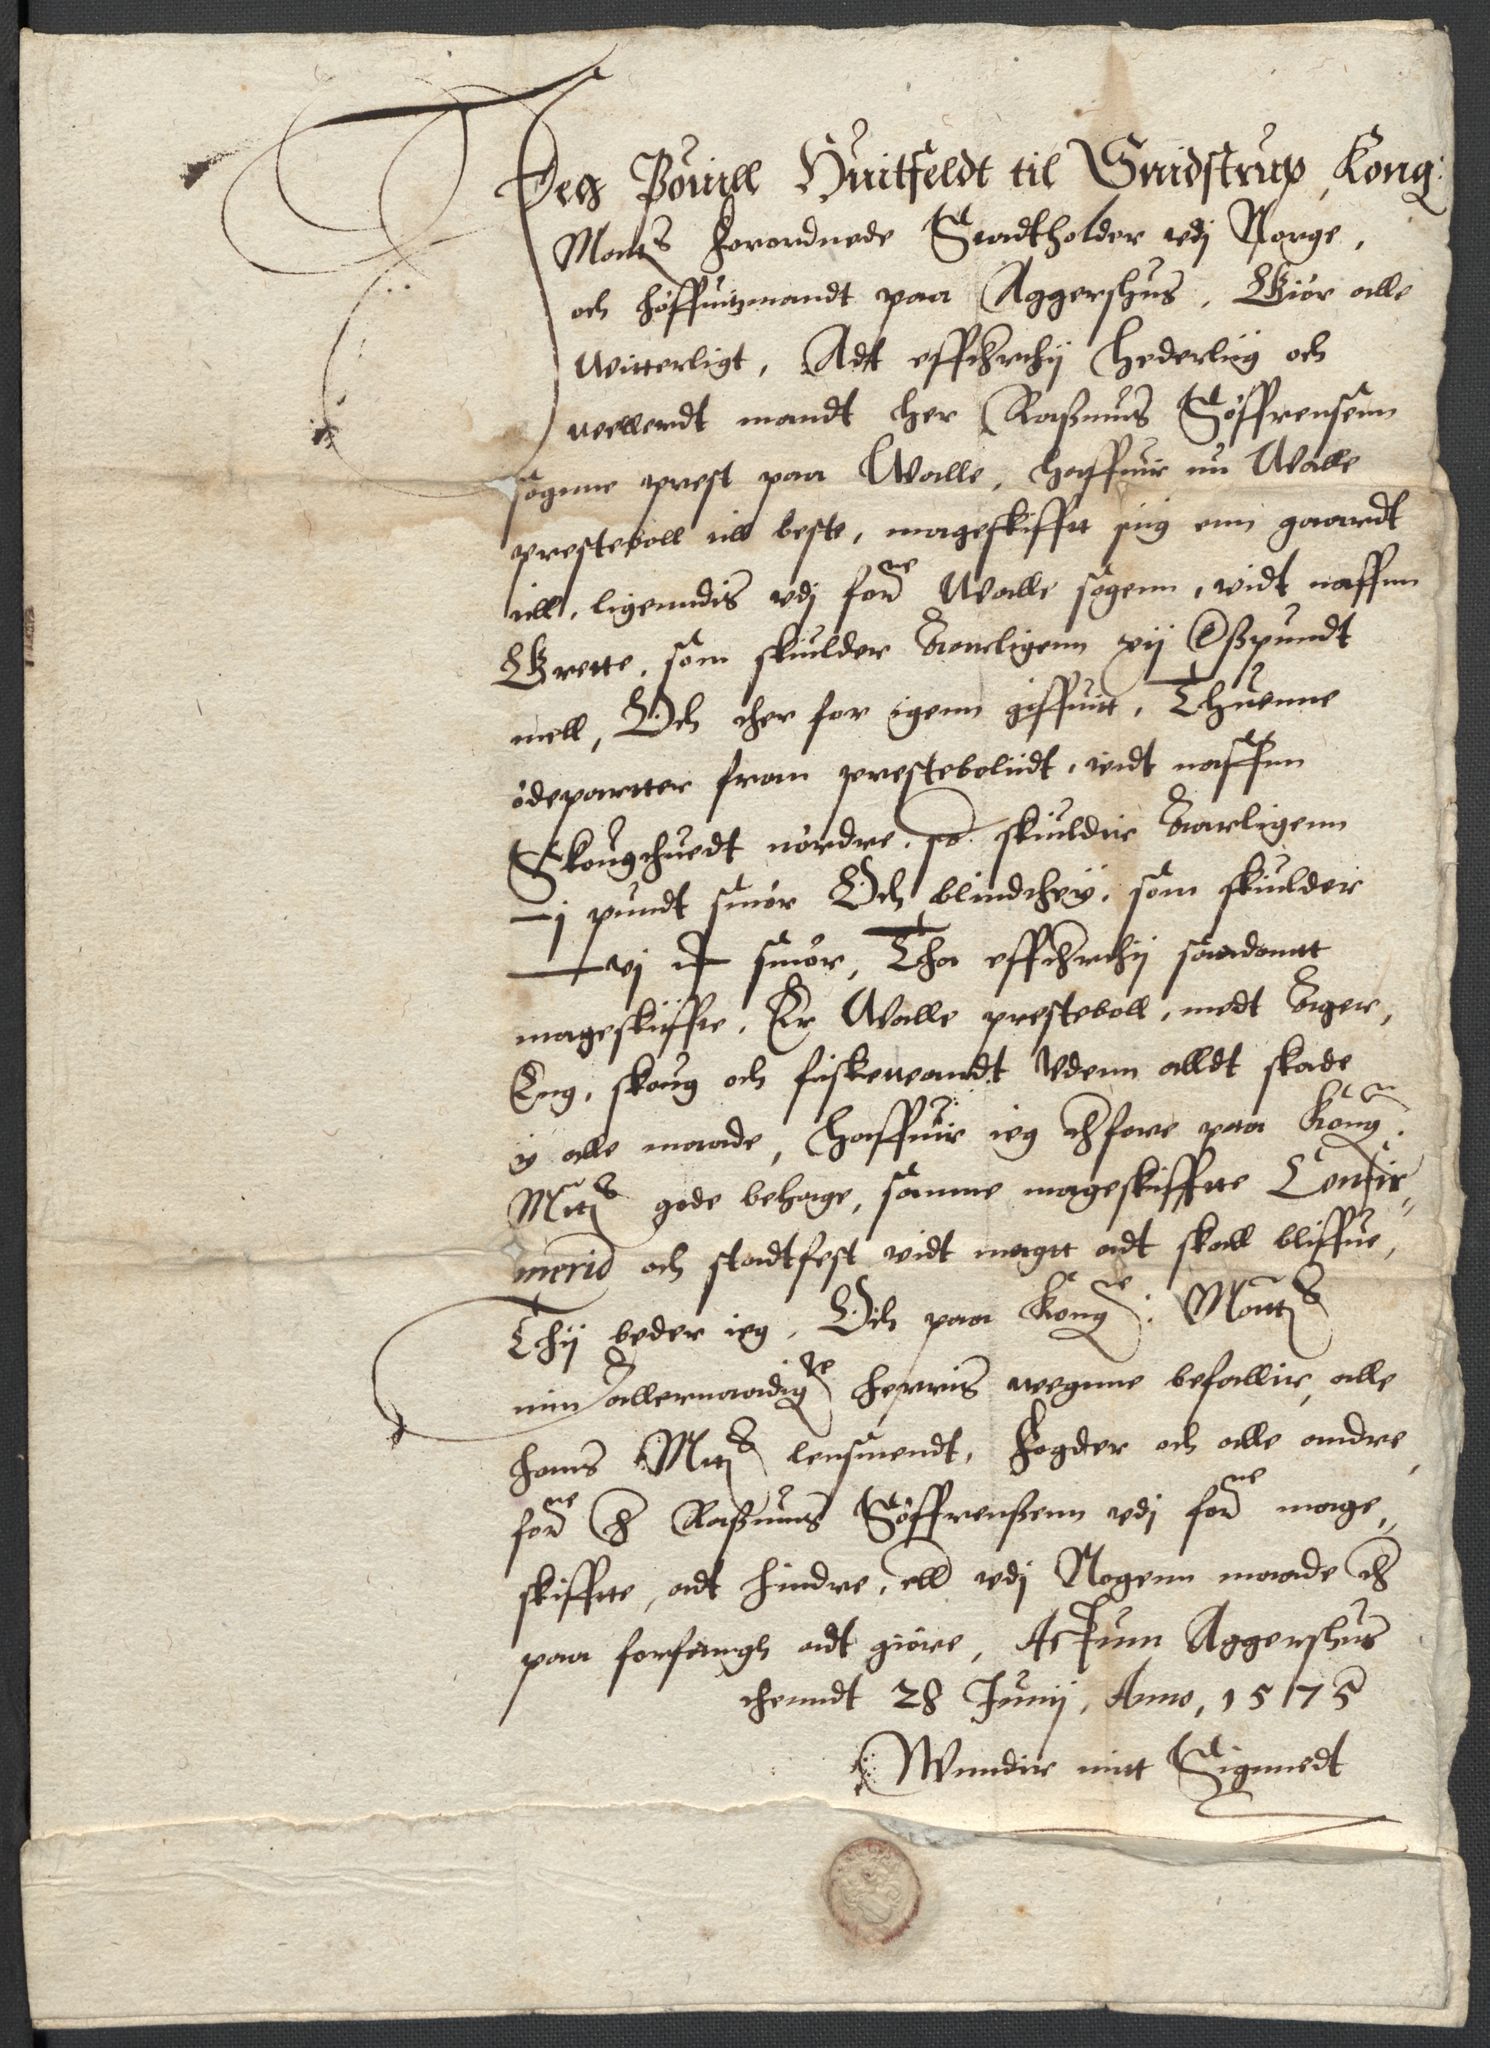 Jeg Pouill Huitfeldt til Snidstrup, Kong:
Mautts forordnede Stadtholder vdj Norge,
och höffuitzmandt paa Aggershus, Giör alle
Witterligt, Adt effthrthij hederlüg och
wellerdt mandt her Raßmus Söffrensenn
sögnne prest paa Walle, haffuir nu Walle
presteboll till beste, mageskifftt siig enn gaardt
till, ligenndis vdj forne Walle sogenn, widt naffnn
Grette, som skiulder Aarligenn xij Ößpundt
mell, Och ther for igenn giffuitt, Thuenne
ödepartter fraa prestebolüdt, widt naffnn
Skougthuedt nordre, so skiuldir Aarligenn
j pundt smör Och blindthey, som skiulder
vj smör, Tha effthrthij saadantt
mageskiiffte, Er Walle presteboll, medt Ager,
Eng, skoug och fiskeuandt Vdenn alldt skade
ij alle maade, haffuir ieg thrfore paa Kong:
Mtts gode behage, samme mageskifftte Confir„
merid och stadtfest widt magtt adt skall bliffue,
Thij beder ieg, Och paa Konge: Mautts
min allernaadigte herris wegnne befallir, alle
hans Mtts lensmendt, fogder och alle andre,
forne hr Raßmus Söffrenßenn vdj forne mage„
skifftte, adt hindre, ell vdj Nogenn maade thr
paa forfangh adt giöre, Actum Aggershus
thenndt 28 Junij, Anno, 1575
Wnndir mitt Signnedt